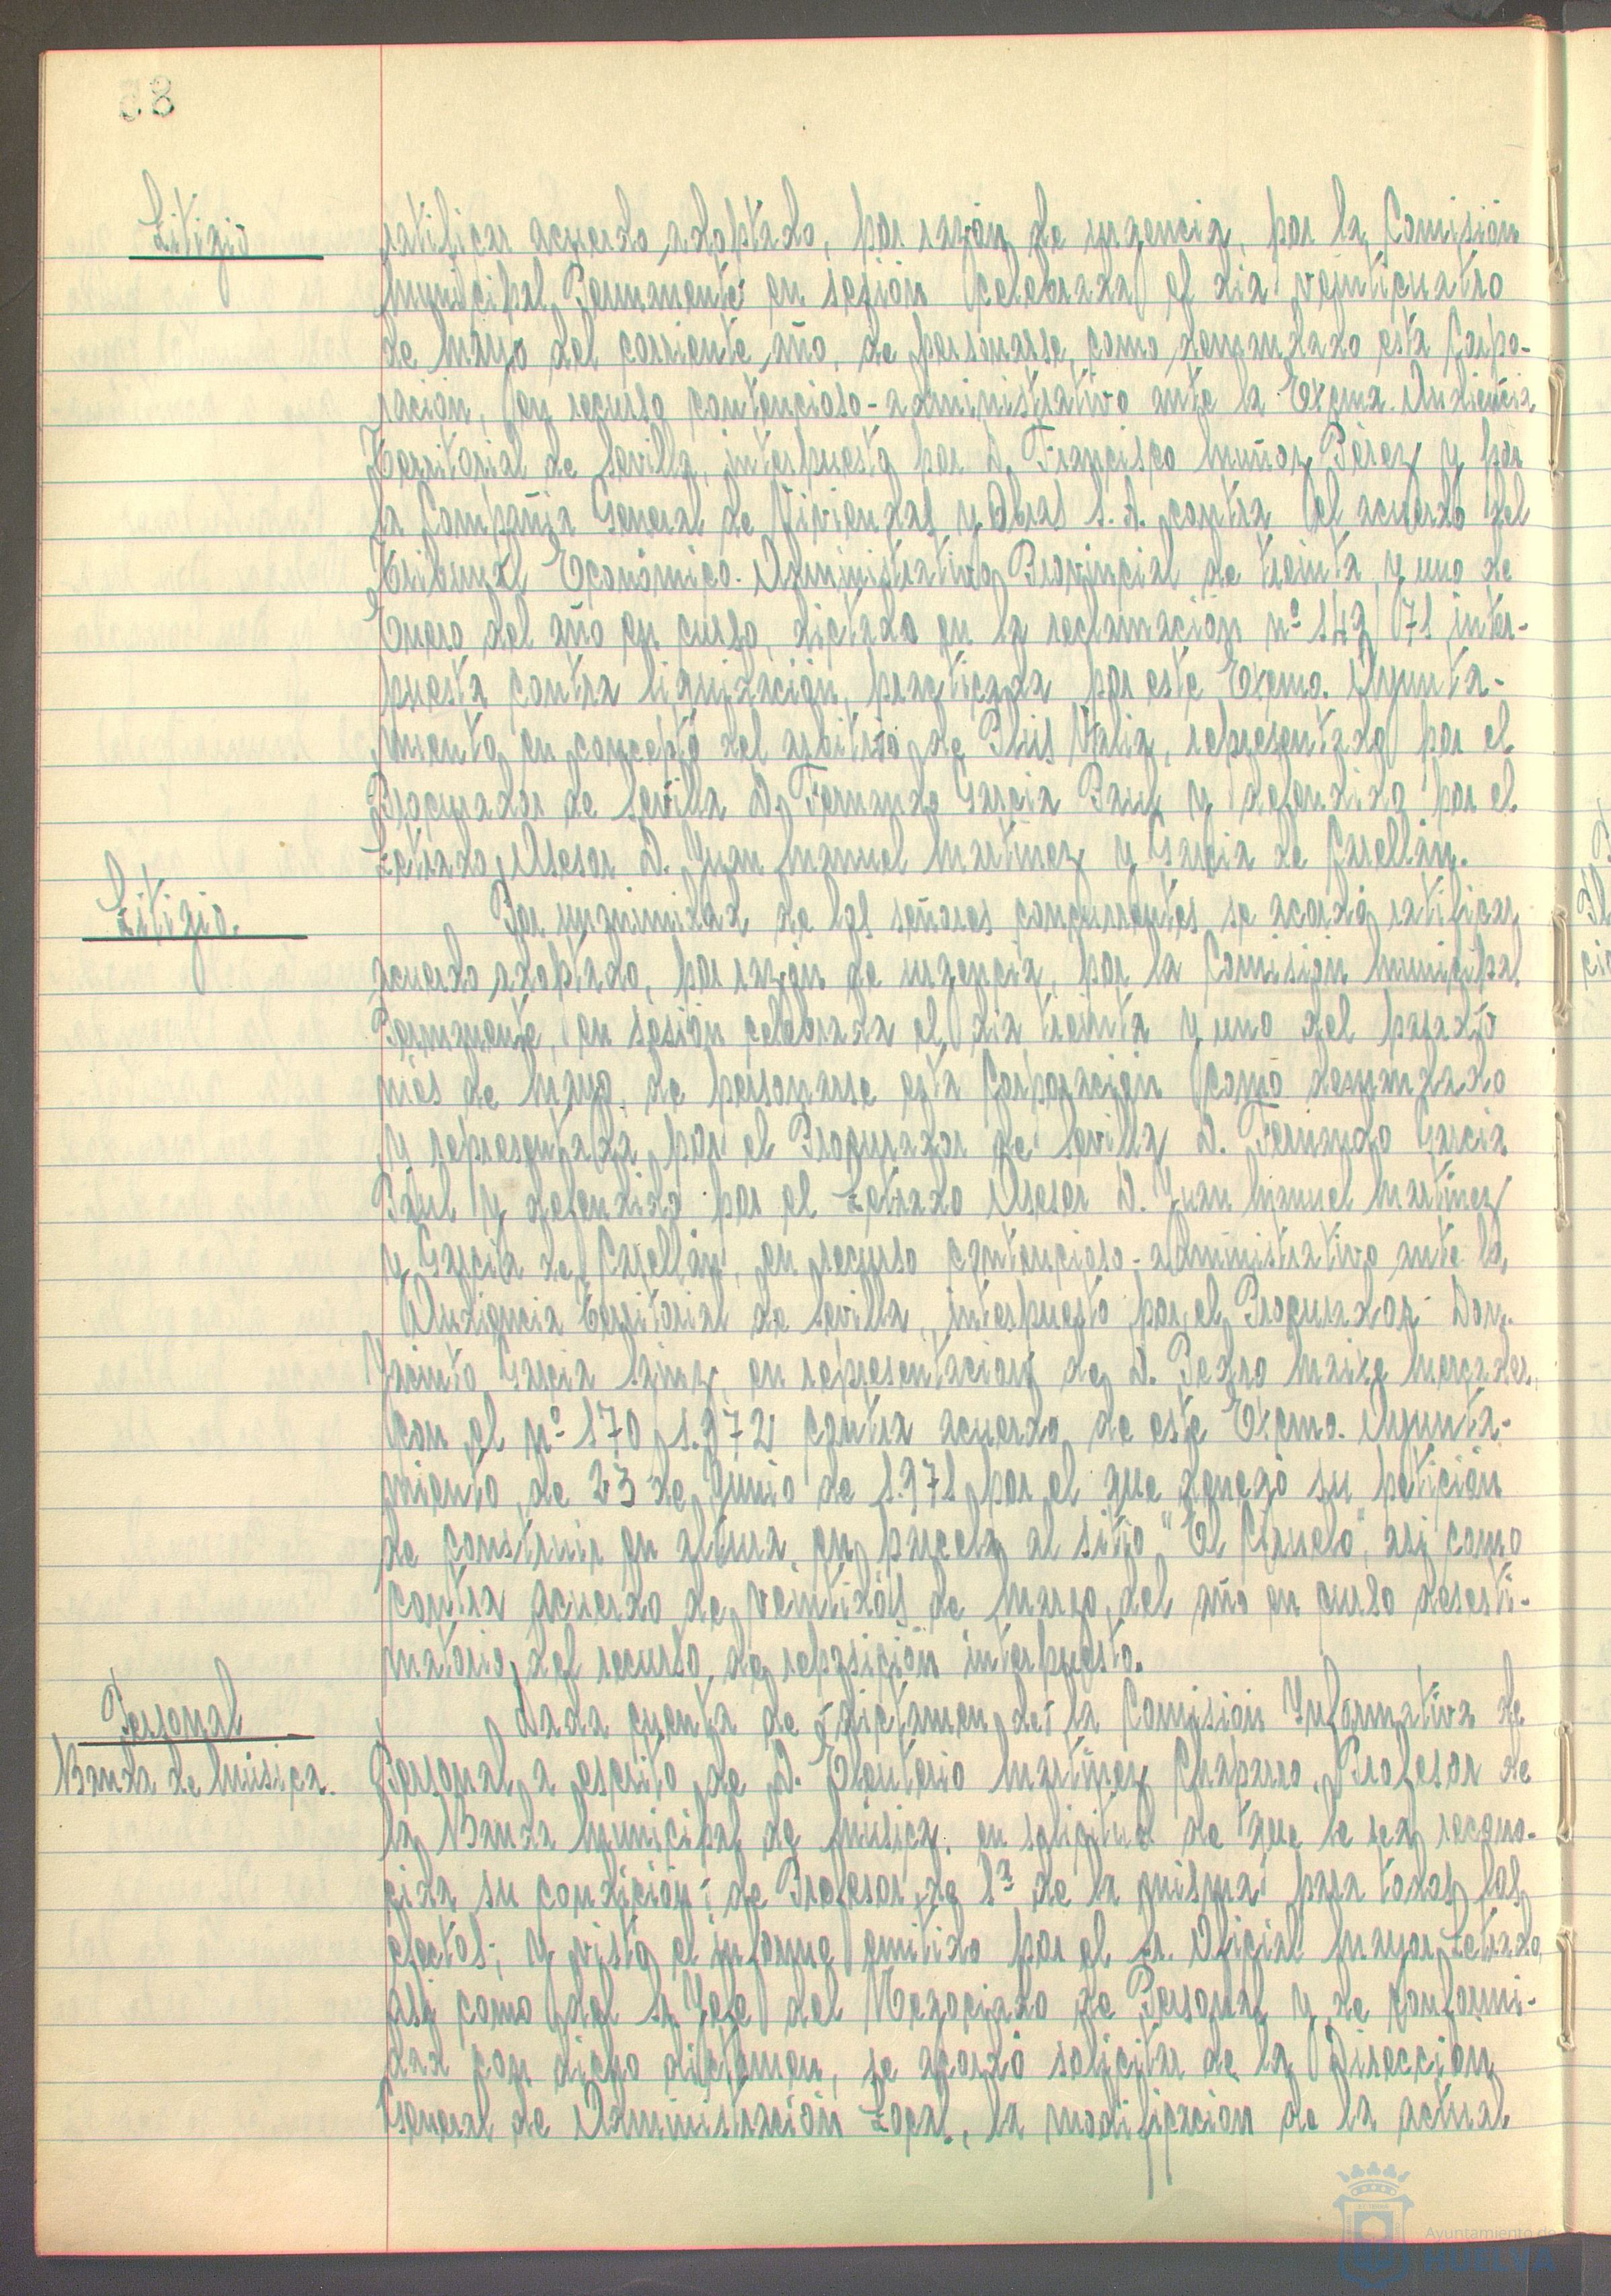 58
Litigio
ratificar acuerdo adoptado, por razón de urgencia, por la Comisión
Municipal Permanente en sesión celebrada el dia veinticuatro
de mayo del corriente año, de personarse, como demandado esta Corpo-
ración, en recurso contencioso-administrativo ante la Excma. Audiencia
Territorial de Sevilla, interpuesto por D. Francisco Muñoz Pérez y por
la Compañia General de Viviendas y Obras S.A. contra el acuerdo del
Tribunal Económico-Administrativo Provincial de treinta y uno de
Enero del año en curso, dictado en la reclamación nº 142/71 inter-
puesta contra liquidación, practicada por este Excmo. Ayunta-
miento, en concepto del arbitrio de Plus Valia, representado por el
Procurador de Sevilla D. Fernando Garcia Paul y defendido por el
Letrado Asesor D. Juan Manuel Martinez y Garcia de Casellán.
Litigio.
Por unanimidad de los señores concurrentes se acordó ratificar
acuerdo adoptado, por razón de urgencia, por la Comisión Municipal
Permanente, en sesión celebrada el dia treinta y uno del pasado
més de Mayo, de personarse esta Corporación como demandado
y representada por el Procurador de Sevilla D. Fernando Garcia
Paul y defendido por el Letrado Asesor D. Juan Manuel Martinez
y Garcia de Casellán, en recurso contencioso-administrativo ante la
Audiencia Territorial de Sevilla, interpuesto por el Procurador Don
Jacinto Garcia Sainz, en representación de D. Pedro Mercader,
con el nº 170/1.972 contra acuerdo de este Excmo. Ayunta-
miento, de 23 de Junio de 1.971 por el que denegó su petición
de construir en altura, en parcela al sitio "El Ciruelo", asi como
contra acuerdo de veintidós de Marzo, del año en curso desesti-
matorio, del recurso, de reposición interpuesto.
Personal
Banda de Música.
Dada cuenta de dictamen de la Comisión Informativa de
Personal, a escrito de D. Eleuterio Martinez Chaparro, Profesor de
la Banda Municipal de Música, en solicitud de que le sea recono-
cida su condición de Profesor de 1ª de la misma para todos los
efectos; y visto el informe emitido por el Sr. Oficial Mayor Letrado,
asi como del Sr. Jefe del Negociado de Personal y de conformi-
dad con dicho dictamen, se acordó solicitar de la Dirección
General de Administración Local, la modificación de la actual
Ayuntamiento de
HUELVA